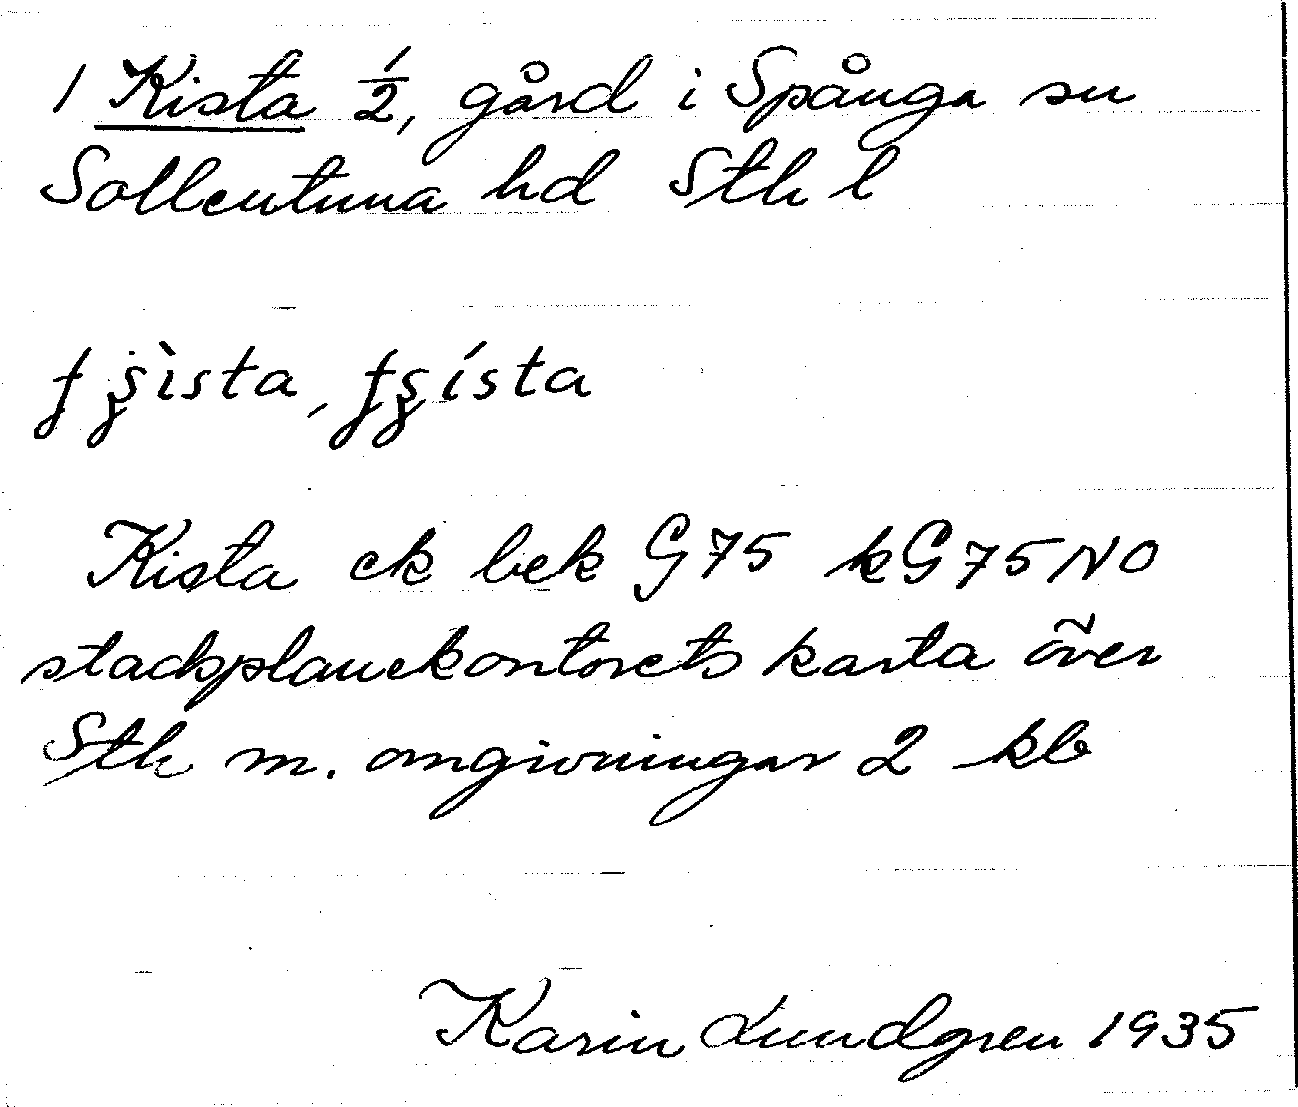 1 Kista 1/2, gård i Spånga sn
Sollentuna hd Sth l
Kista ek bek G 75 kG 75 NO
stadsplanekontorets karta över
Sth m. omgivningar 2 kb
Karin Lundgren 1935